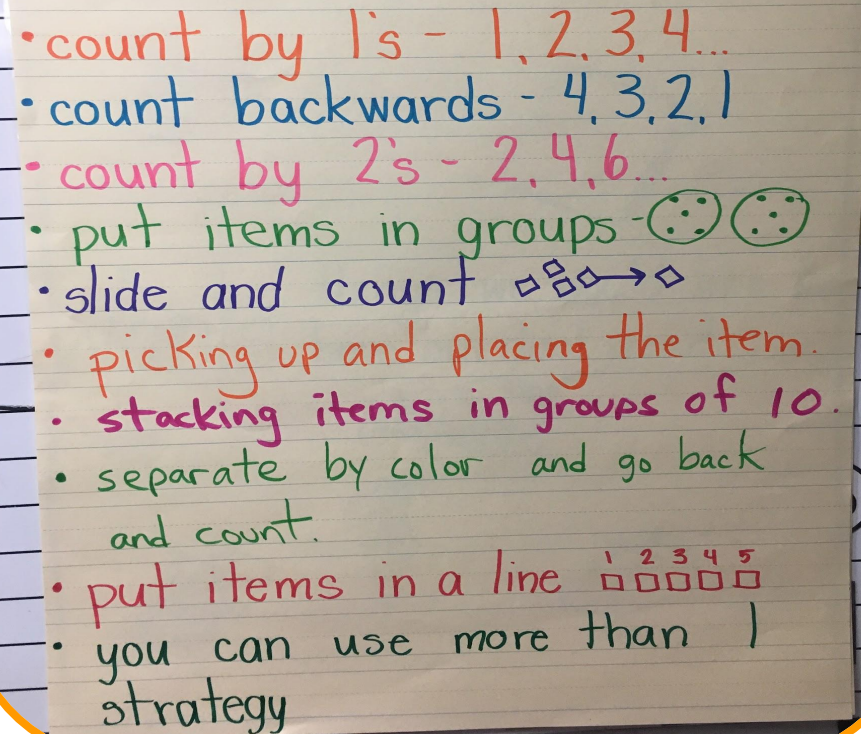 • count by 1's - 1, 2, 3, 4...
• count backwards - 4, 3, 2, 1
• count by 2's - 2, 4, 6...
• put items in groups -
• slide and count
• picking up and placing the item.
• stacking items in groups of 10.
• separate by color and go back
and count.
• put items in a line 1 2 3 4 5
• you can use more than 1
strategy